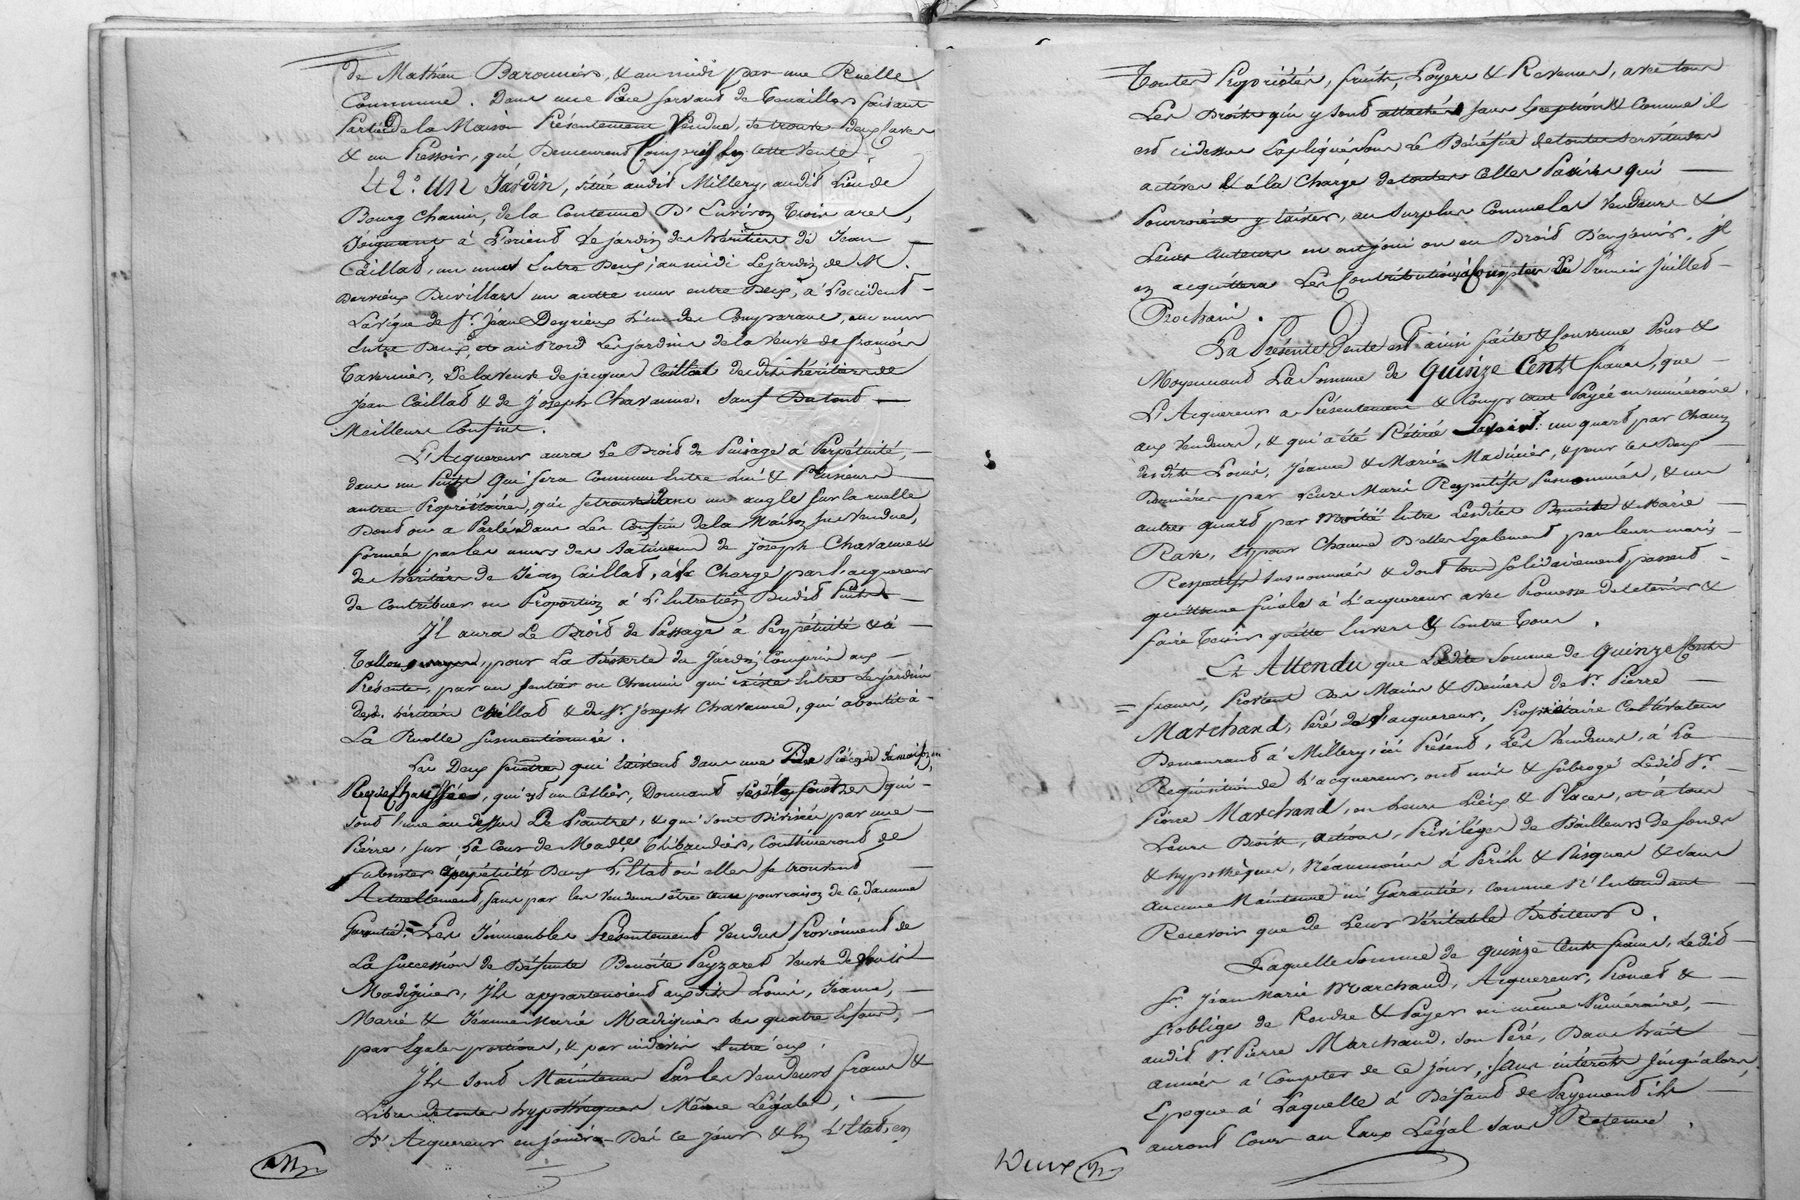 de Mathieu Baronnier, & au midi par une Ruelle
Commune. Dans une Pièce servant de Tenailler faisant
Partie de la Maison Présentement Vendue, se trouve Deux laves
& un Pressoir, qui Demeurent Compris En Cette Vente.
42.° Un Jardin, situé audit Millery, audit Lieu de
Bourg chanin, de la Contenue D'Environ Trois ares,
Joignant à L'orient Le jardin des héritiers de Jean
Caillat, un mur Entre Deux; au midi Le jardin de M.
Dervieux Duvillars un autre mur entre Deux, à L'occident
La vigne de Sr. Jean Deyrieux L'un des Comparans, un mur
Entre Deux, et au Nord Les jardins de la Veuve de françois
Tavernier, De la veuve de jacques Caillat desdits héritiers de
Jean Caillat & de Joseph Chavanne. Sauf Du tout
Meilleurs Confins.
L'Acquereur aura Le Droit de Puisage à Perpétuité,
dans un Puits Qui sera Commun Entre Lui & Plusieurs
autres Propriétaires, qui se trouve dans un angle sur la ruelle
Dont on a Parlé Dans Les Confins de la Maison sus Vendue,
formée par les murs des Bâtimens de Joseph Chavanne &
des héritiers de Jean Caillat, à la Charge par l'acquereur
de Contribuer en Proportion à L'Entretien Dudit Puits
J'l aura Le Droit de Passage à Perpétuité & à
Talon, pour La Desserte du Jardin Compris aux
Présentes, par un sentier ou Chemin qui existe Entre Les jardins
desd. héritiers Caillat & du Sr. Joseph Chavanne, qui aboutit à
La Ruelle susmentionnée.
Les Deux fenêtres qui Existent dans une Pièce
Rez de Chaussée, qui est un Cellier, Donnant fenêtres qui
sont l'une au dessus De L'autre, & qui sont Divisées par une
Pierre, sur La Cour de Madlle. Thibaudier, Continueront de
Subsister à perpétuité Dans L'Etat où elles se trouvent
Actuellement, sans par les Vendeurs être tenus pour raison de ce, d'aucune
Garantie. Les Jmmeubles Présentement Vendus Proviennent de
La Succession de Défunte Benoite Peyzaret veuve de Louis
Madignier, Jls appartenoient auxdits Louis, Jeanne,
Marie & Jeanne Marie Madignier ses quatre Enfans,
par Egales portions, & par indivis Entre eux.
J'ls sont Maintenus Par les Vendeurs francs &
Libres de toutes hypothèques Même Légales,
L'Acquereur en jouira Dès ce jour & En L'Etat, en
Toutes Propriétés, fruits, Loyers & Revenus, avec tous
Les Droits qui y sont attachés sans Exception & Comme il
est cidessus Expliqué sous Le Bénéfice de toutes servitudes
actives & à la Charge de toutes Celles Passives qui
Pourroient y Exister, au Surplus Comme les Vendeurs &
Leurs Auteurs en ont joui ou eu Droit D'en jouir. Jl
en acquittera Les Contributions à Compter du Premier Juillet
Prochain.
La Présente Vente est ainsi faite & Convenue Pour &
Moyennant La Somme de Quinze Cents francs, que
L'Acquereur a Présentement & Comptant Payée en numéraire
aux Vendeurs, & qui a été Rétirée Savoir: un quart par Chacun
desdits Louis, Jeanne & Marie Madinier, & pour les Deux
Dernières par leurs Maris Respectifs Susnommés, & un
autre quart par Moitié Entre Lesdites Benoite & Marie
Rave, & pour Chacune D'elles Egalement par leurs maris
Respectifs Susnommés & dont tous solidairement passent
quittance finale à L'acquereur avec Promesse de le tenir &
faire Tenir quitte Envers & Contre Tous.
Et Attendu que Ladite Somme de Quinze Cents
francs, Provient des Mains & Deniers de Sr. Pierre
Marchand, Père de L'acquereur, Propriétaire Cultivateur
Demeurant à Millery, ici Présent, Les Vendeurs, à La
Réquisition de L'acquereur, ont mis & subrogé Ledit Sr.
Pierre Marchand, en Leurs Lieux & Places, et à tous
Leurs Droits, actions, Privilèges de Bailleurs de fonds
& hypothèques, Néanmoins à Périls & Risques & Sans
aucune Maintenue ni Garantie, comme N'Entendant
Recevoir que de Leur Véritable Débiteur.
Laquelle Somme de quinze Cents francs, Ledit
Sr. Jean Marie Marchand, Acquereur, Promet &
s'oblige de Rendre & Payer en même Numéraire,
audit Sr. Pierre Marchand, Son Père, Dans trois
années à Compter de Ce jour, sans intérêts Jusqu'alors,
Epoque à Laquelle à Défaut de Payement ils
auront Cours au Taux Légal sans Retenue.
Deux